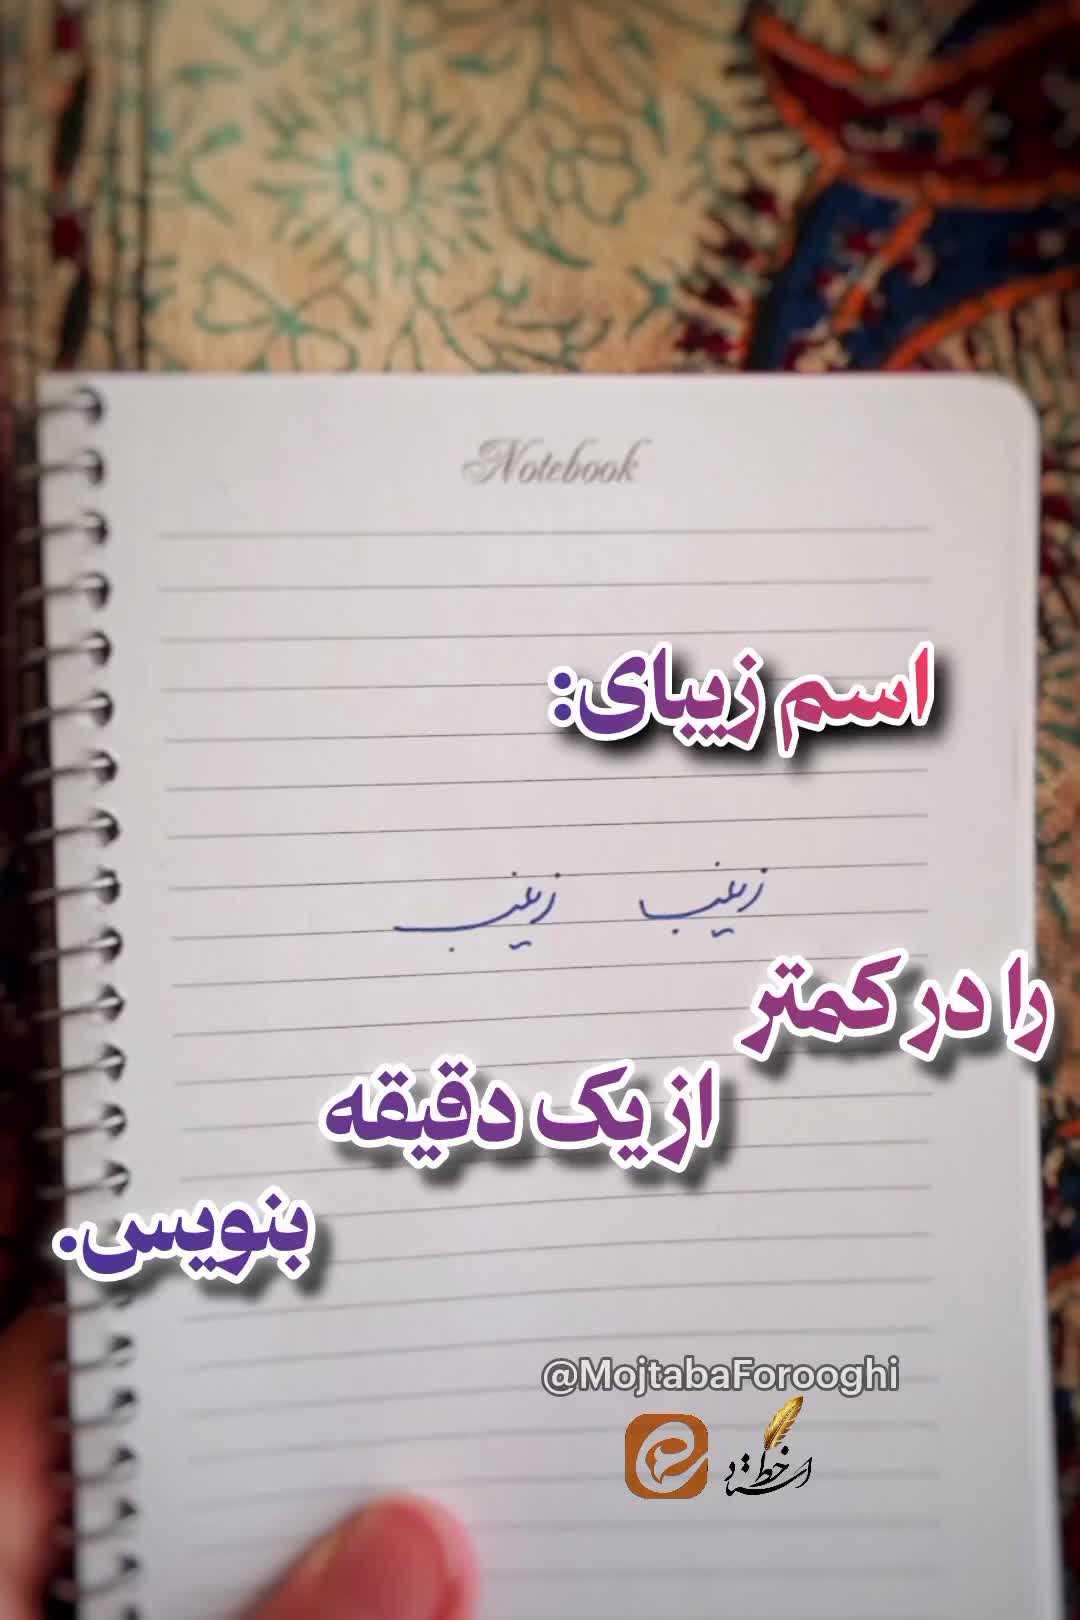 Notebook
اسم زیبای:
زینب زینب
را در کمتر
از یک دقیقه
بنویس.
@MojtabaForooghi
استاد خط